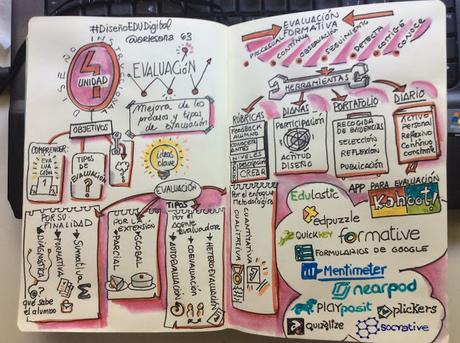 #DiseñoEDUDigital
4
UNIDAD
EVALUACIÓN
Mejora de los
procesos y tipos
de evaluación
OBJETIVOS
COMPRENDER
EVA
LUA
CIÓN
TIPOS
DE
EVALUACIÓN
?
ideas
clave
EVALUACIÓN
TIPOS
POR SU
FINALIDAD
DIAGNÓSTICA
FORMATIVA
SUMATIVA
qué sabe
el alumno
POR LA
EXTENSIÓN
PARCIAL
GLOBAL
Por el
Agente
Evaluador
AUTOEVALUACIÓN
COEVALUACIÓN
HETEROEVALUACIÓN
Por el enfoque
Metodológico
CUALITATIVA
CUANTITATIVA
EVALUACIÓN
FORMATIVA
PROCESUAL
CONTINUA
OBSERVACIÓN
SEGUIMIENTO
DETECTA
CORRIGE
CONOCE
HERRAMIENTAS
RÚBRICAS
FEEDBACK
ALUMNO
NIVELES
CREAR
DIANAS
Participación
ACTITUD
DISEÑO
PORTAFOLIO
RECOGIDA
DE EVIDENCIAS
SELECCIÓN
REFLEXIÓN
PUBLICACIÓN
DIARIO
Activo
Personal
Reflexivo
Continuo
constante
APP PARA EVALUACIÓN
Kahoot!
Edulastic
edpuzzle
QUICKKEY
formative
FORMULARIOS DE GOOGLE
Mentimeter
nearpod
PLAYposit
plickers
quizalize
socrative